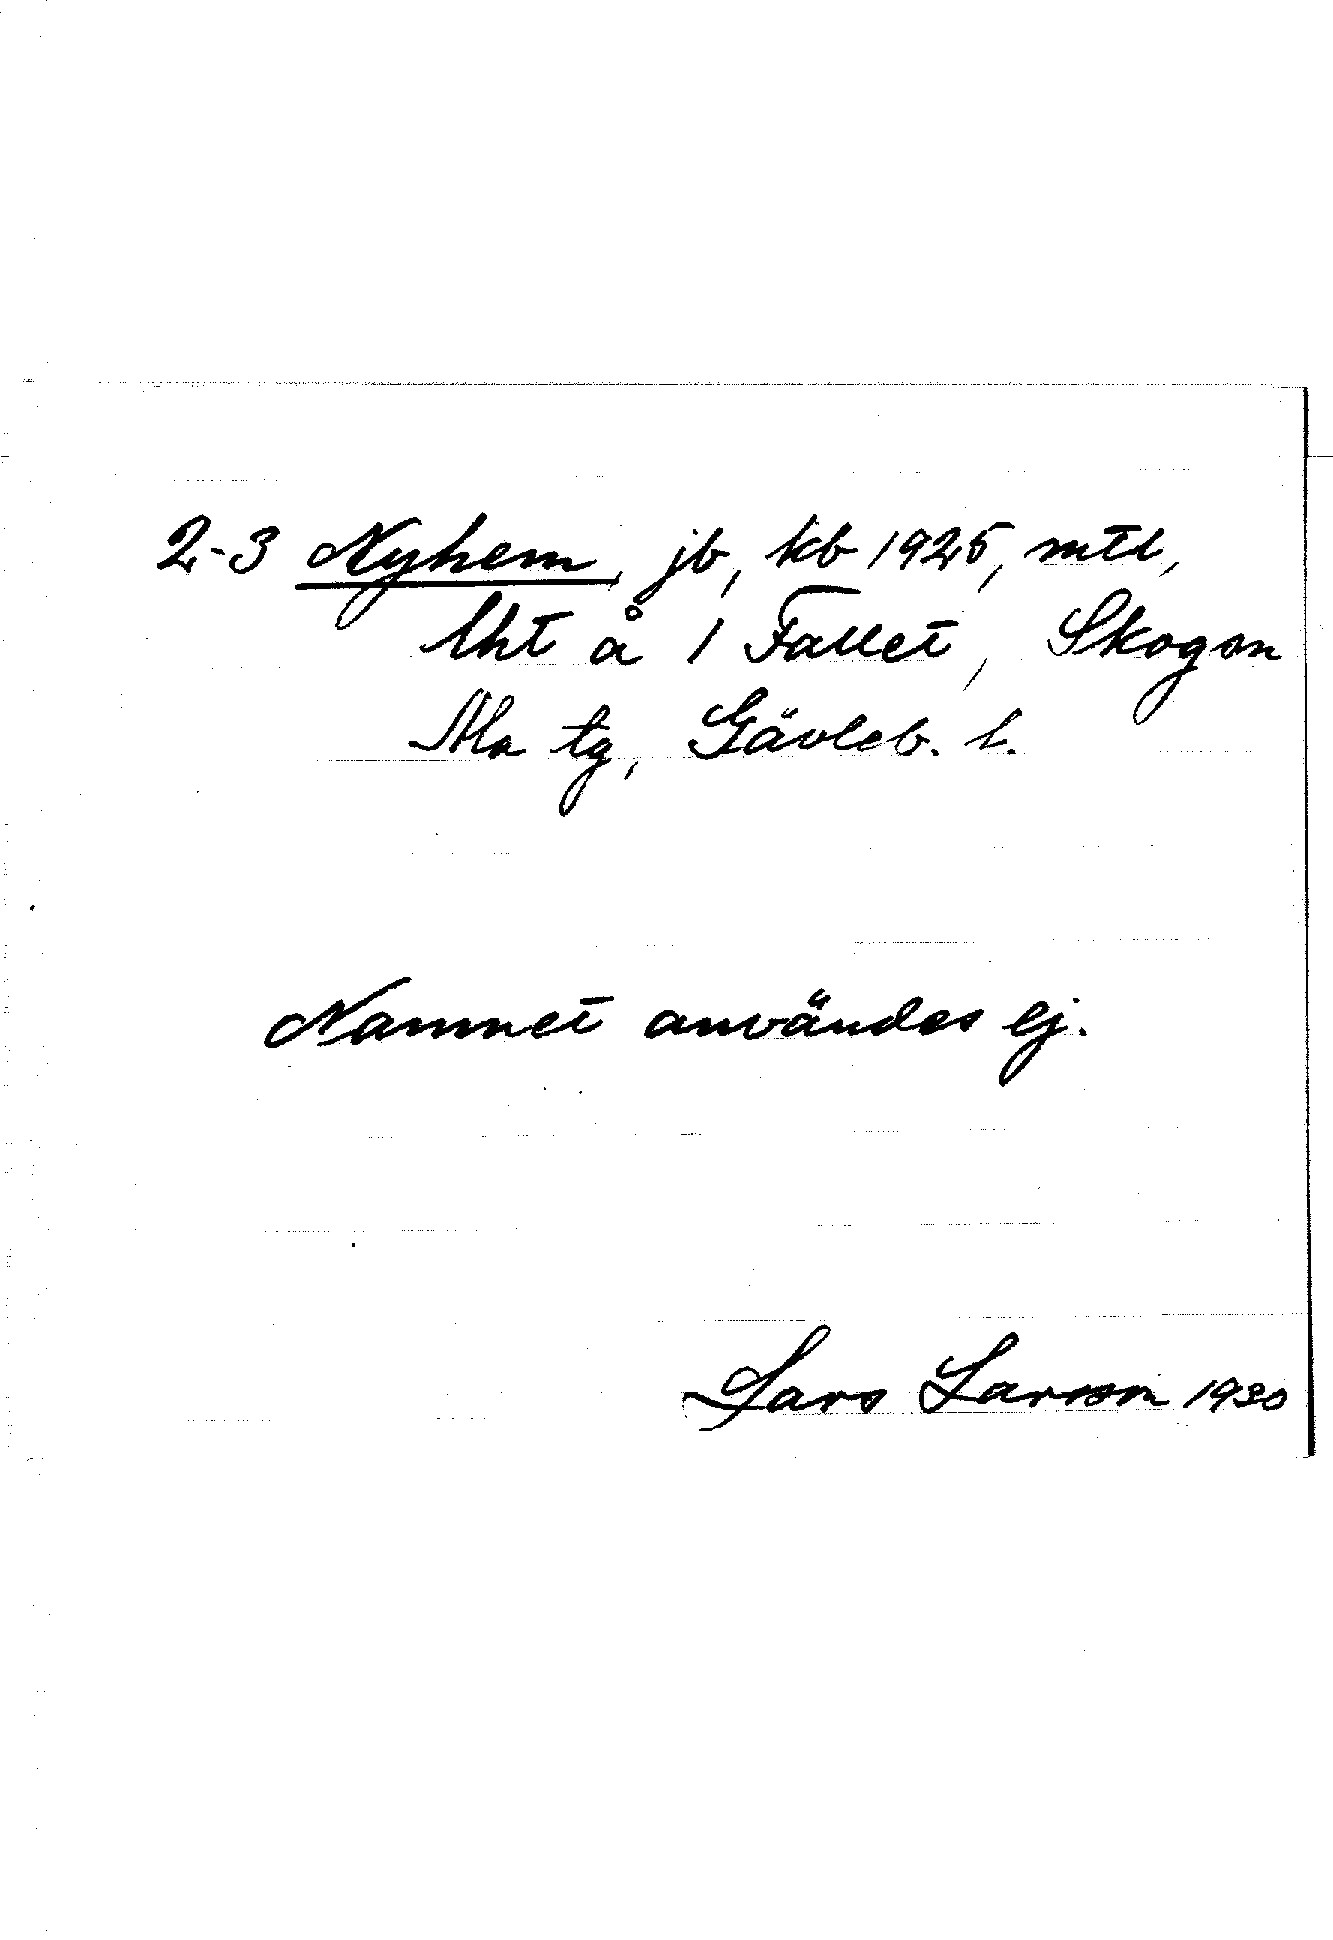 2-3 Nyhem, jb, kb 1925, mtl,
lht å 1 Fallet, Skogsn
Ala tg, Gävleb. l.
Namnet användes ej.
Lars Larsson 1930